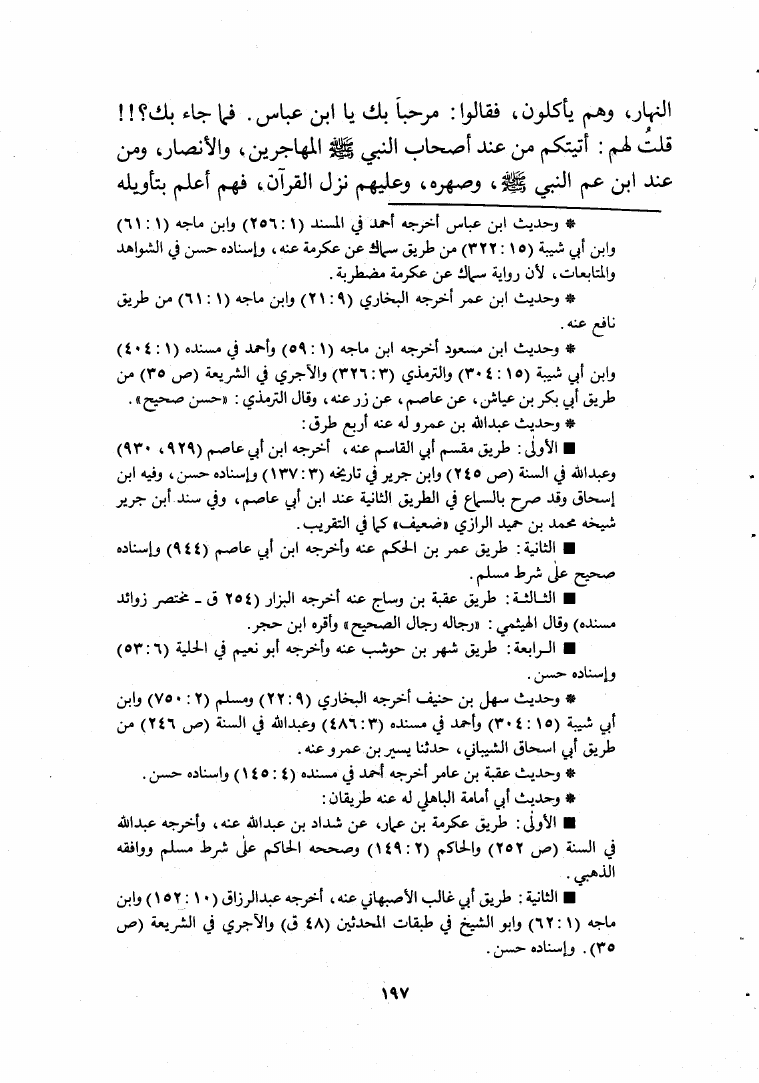 النهار، وهم يأكلون، فقالوا: مرحباً بك يا ابن عباس. فما جاء بك؟!!
قلتُ لهم: أتيتكم من عند أصحاب النبي ﷺ المهاجرين، والأنصار، ومن
عند ابن عم النبي ﷺ، وصهره، وعليهم نزل القرآن، فهم أعلم بتأويله
* وحديث ابن عباس أخرجه أحمد في المسند (١: ٢٥٦) وابن ماجه (١: ٦١)
وابن أبي شيبة (١٥: ٣٢٢) من طريق سماك عن عكرمة عنه، وإسناده حسن في الشواهد
والمتابعات، لأن رواية سماك عن عكرمة مضطربة.
* وحديث ابن عمر أخرجه البخاري (٩: ٢١) وابن ماجه (١: ٦١) من طريق
نافع عنه.
* وحديث ابن مسعود أخرجه ابن ماجه (١: ٥٩) وأحمد في مسنده (١: ٤٠٤)
وابن أبي شيبة (١٥: ٣٠٤) والترمذي (٣: ٣٢٦) والآجري في الشريعة (ص ٣٥) من
طريق أبي بكر بن عياش، عن عاصم، عن زر عنه، وقال الترمذي: «حسن صحيح».
* وحديث عبدالله بن عمرو له عنه أربع طرق:
■ الأولى: طريق مقسم أبي القاسم عنه، أخرجه ابن أبي عاصم (٩٢٩، ٩٣٠)
وعبدالله في السنة (ص ٢٤٥) وابن جرير في تاريخه (٣: ١٣٧) وإسناده حسن، وفيه ابن
إسحاق وقد صرح بالسماع في الطريق الثانية عند ابن أبي عاصم، وفي سند ابن جرير
شيخه محمد بن حميد الرازي «ضعيف» كما في التقريب.
■ الثانية: طريق عمر بن الحكم عنه وأخرجه ابن أبي عاصم (٩٤٤) وإسناده
صحيح على شرط مسلم.
■ الثالثة: طريق عقبة بن وساج عنه أخرجه البزار (٢٥٤ ق - مختصر زوائد
مسنده) وقال الهيثمي: «رجاله رجال الصحيح» وأقره ابن حجر.
■ الرابعة: طريق شهر بن حوشب عنه وأخرجه أبو نعيم في الحلية (٦: ٥٣)
وإسناده حسن.
* وحديث سهل بن حنيف أخرجه البخاري (٩: ٢٢) ومسلم (٢: ٧٥٠) وابن
أبي شيبة (١٥: ٣٠٤) وأحمد في مسنده (٣: ٤٨٦) وعبدالله في السنة (ص ٢٤٦) من
طريق أبي اسحاق الشيباني، حدثنا يسير بن عمرو عنه.
* وحديث عقبة بن عامر أخرجه أحمد في مسنده (٤: ١٤٥) واسناده حسن.
* وحديث أبي أمامة الباهلي له عنه طريقان:
■ الأولى: طريق عكرمة بن عمار، عن شداد بن عبدالله عنه، وأخرجه عبدالله
في السنة (ص ٢٥٢) والحاكم (٢: ١٤٩) وصححه الحاكم على شرط مسلم ووافقه
الذهبي.
■ الثانية: طريق أبي غالب الأصبهاني عنه، أخرجه عبدالرزاق (١٠: ١٥٢) وابن
ماجه (١: ٦٢) وابو الشيخ في طبقات المحدثين (٤٨ ق) والآجري في الشريعة (ص
٣٥). وإسناده حسن.
١٩٧